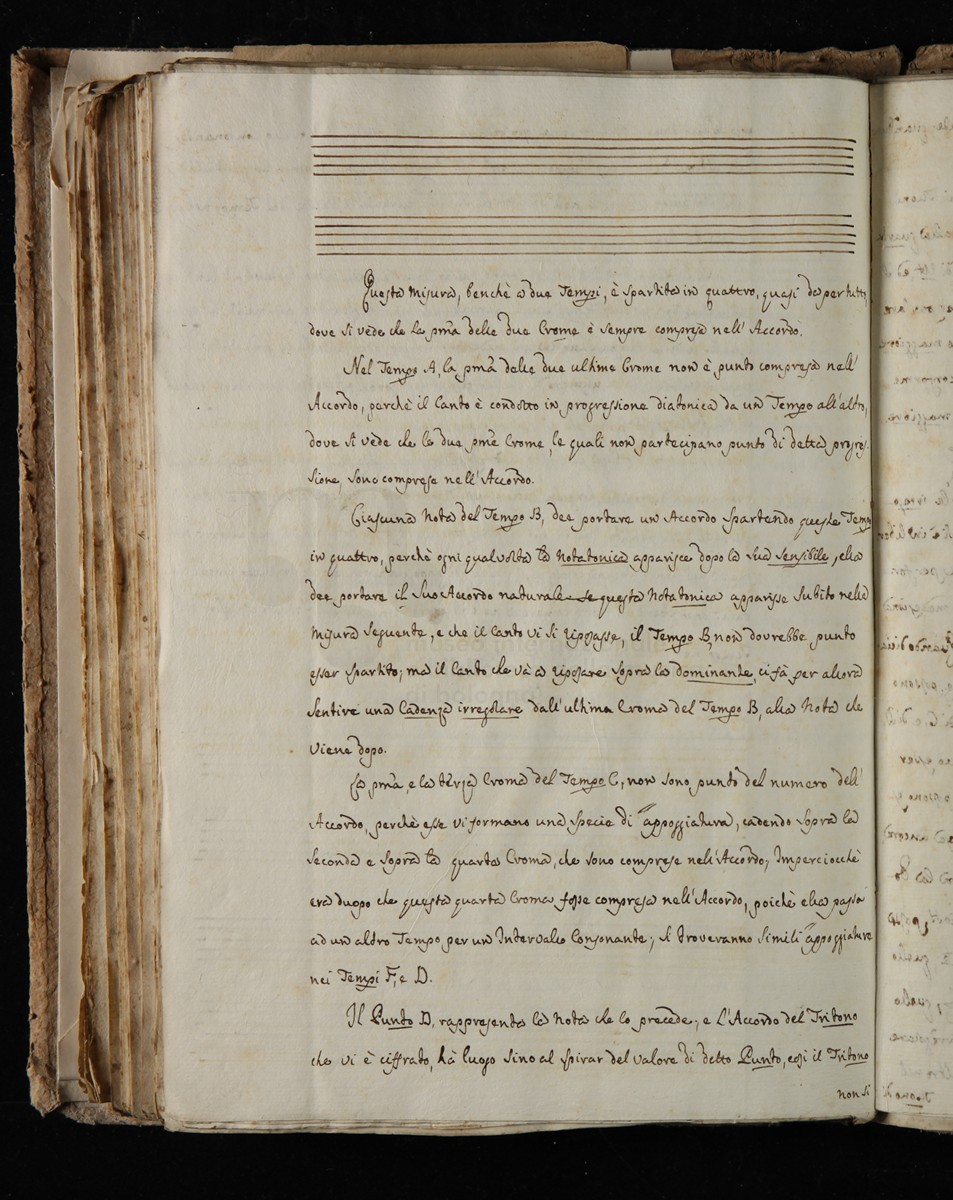 Questa Misura, benchè a due Tempi, è spartita in quattro, quasi da per tutto,
dove si vede che la pma delle due Crome è sempre compresa nell' Accordo.
Nel Tempo A, la pma delle due ultime Crome non è punto compresa nell'
Accordo, perchè il Canto è condotto in progressione diatonica da un Tempo all'altro,
dove si vède che le due pme Crome, le quali non partecipano punto di detta progres-
sione, sono comprese nell' Accordo.
Ciascuna Nota del Tempo B, dee portare un Accordo spartendo queste Tempi
in quattro, perchè ogni qual volta la Notatonica apparisce dopo la sua sensibile, ella
dee portare il suo Accordo naturale se questa Notatonica apparisse subito nella
Misura seguente, e che il Canto vi si riposasse, il Tempo B, non dovrebbe punto
esser spartito; ma il Canto che và a riposare sopra la dominante, ci fà per allora
sentire una Cadenza irregolare dall'ultima Croma del Tempo B, alla Nota che
viene dopo.
La pma, e la terza Croma del Tempo C, non sono punto del numero dell'
Accordo, perchè esse vi formano una specie di appoggiatura, cadendo sopra la
seconda e sopra la quarta Croma, che sono comprese nell'Accordo; Imperciocchè
era duopo che questa quarta Croma fosse compresa nell'Accordo, poichè ella passa
ad un altro Tempo per un Intervallo Consonante; si troveranno simili appoggiature
nei Tempi F, e D.
Il Punto D, rappresenta la Nota che lo precede; e l'Accordo del Tritono
che vi è ciffrato, hà luogo sino al spirar del valore di detto Punto, così il Tritono
non si